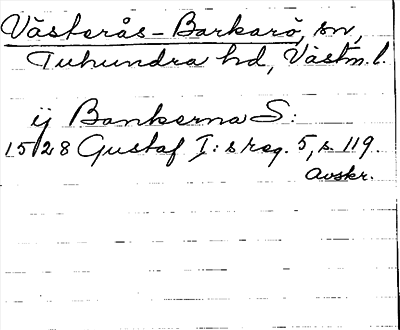 Västerås-Barkarö, sn,
Tuhundra hd, Västm. l.
ij Bankerna S:
1528 Gustaf I:s reg. 5, s. 119.
Avskr.